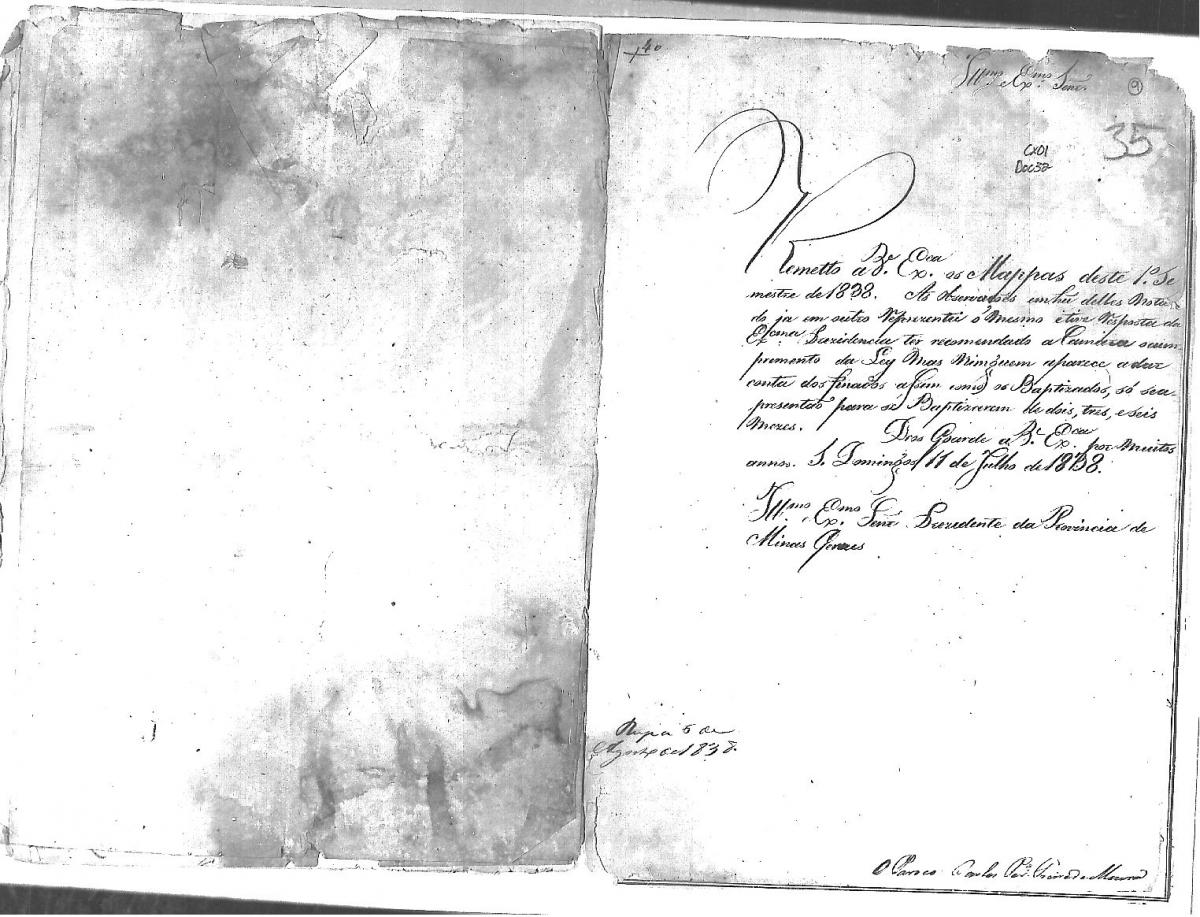 40
Illmo. e Exmo. Senr.
9
35
CX01
Doc 32
Remetto a V.ª Ex.cia os Mappas deste 1º. Se
mestre de 1838. As observações em hú delles Nota
do ja em outro Reprezentei o Mesmo e tive Resposta da
Ex.ma Prezidencia ter recomendado a Camera o cum
primento da Ley Mas Ninguem aparece a dar
conta dos finados assim como os Baptizados, só sea
presentaõ para se Baptizarem de dois, tres, e seis
Mezes.
Deos Guarde a V.ª Ex.cia por Muitos
annos. S. Domingos 11 de Julho de 1838.
Illmo. Exmo. Senr. Prezidente da Provincia de
Minas Geraes
Resp. a 6 de
Agosto de 1838.
O Paroco Carlos Per.ª Freire de Moura